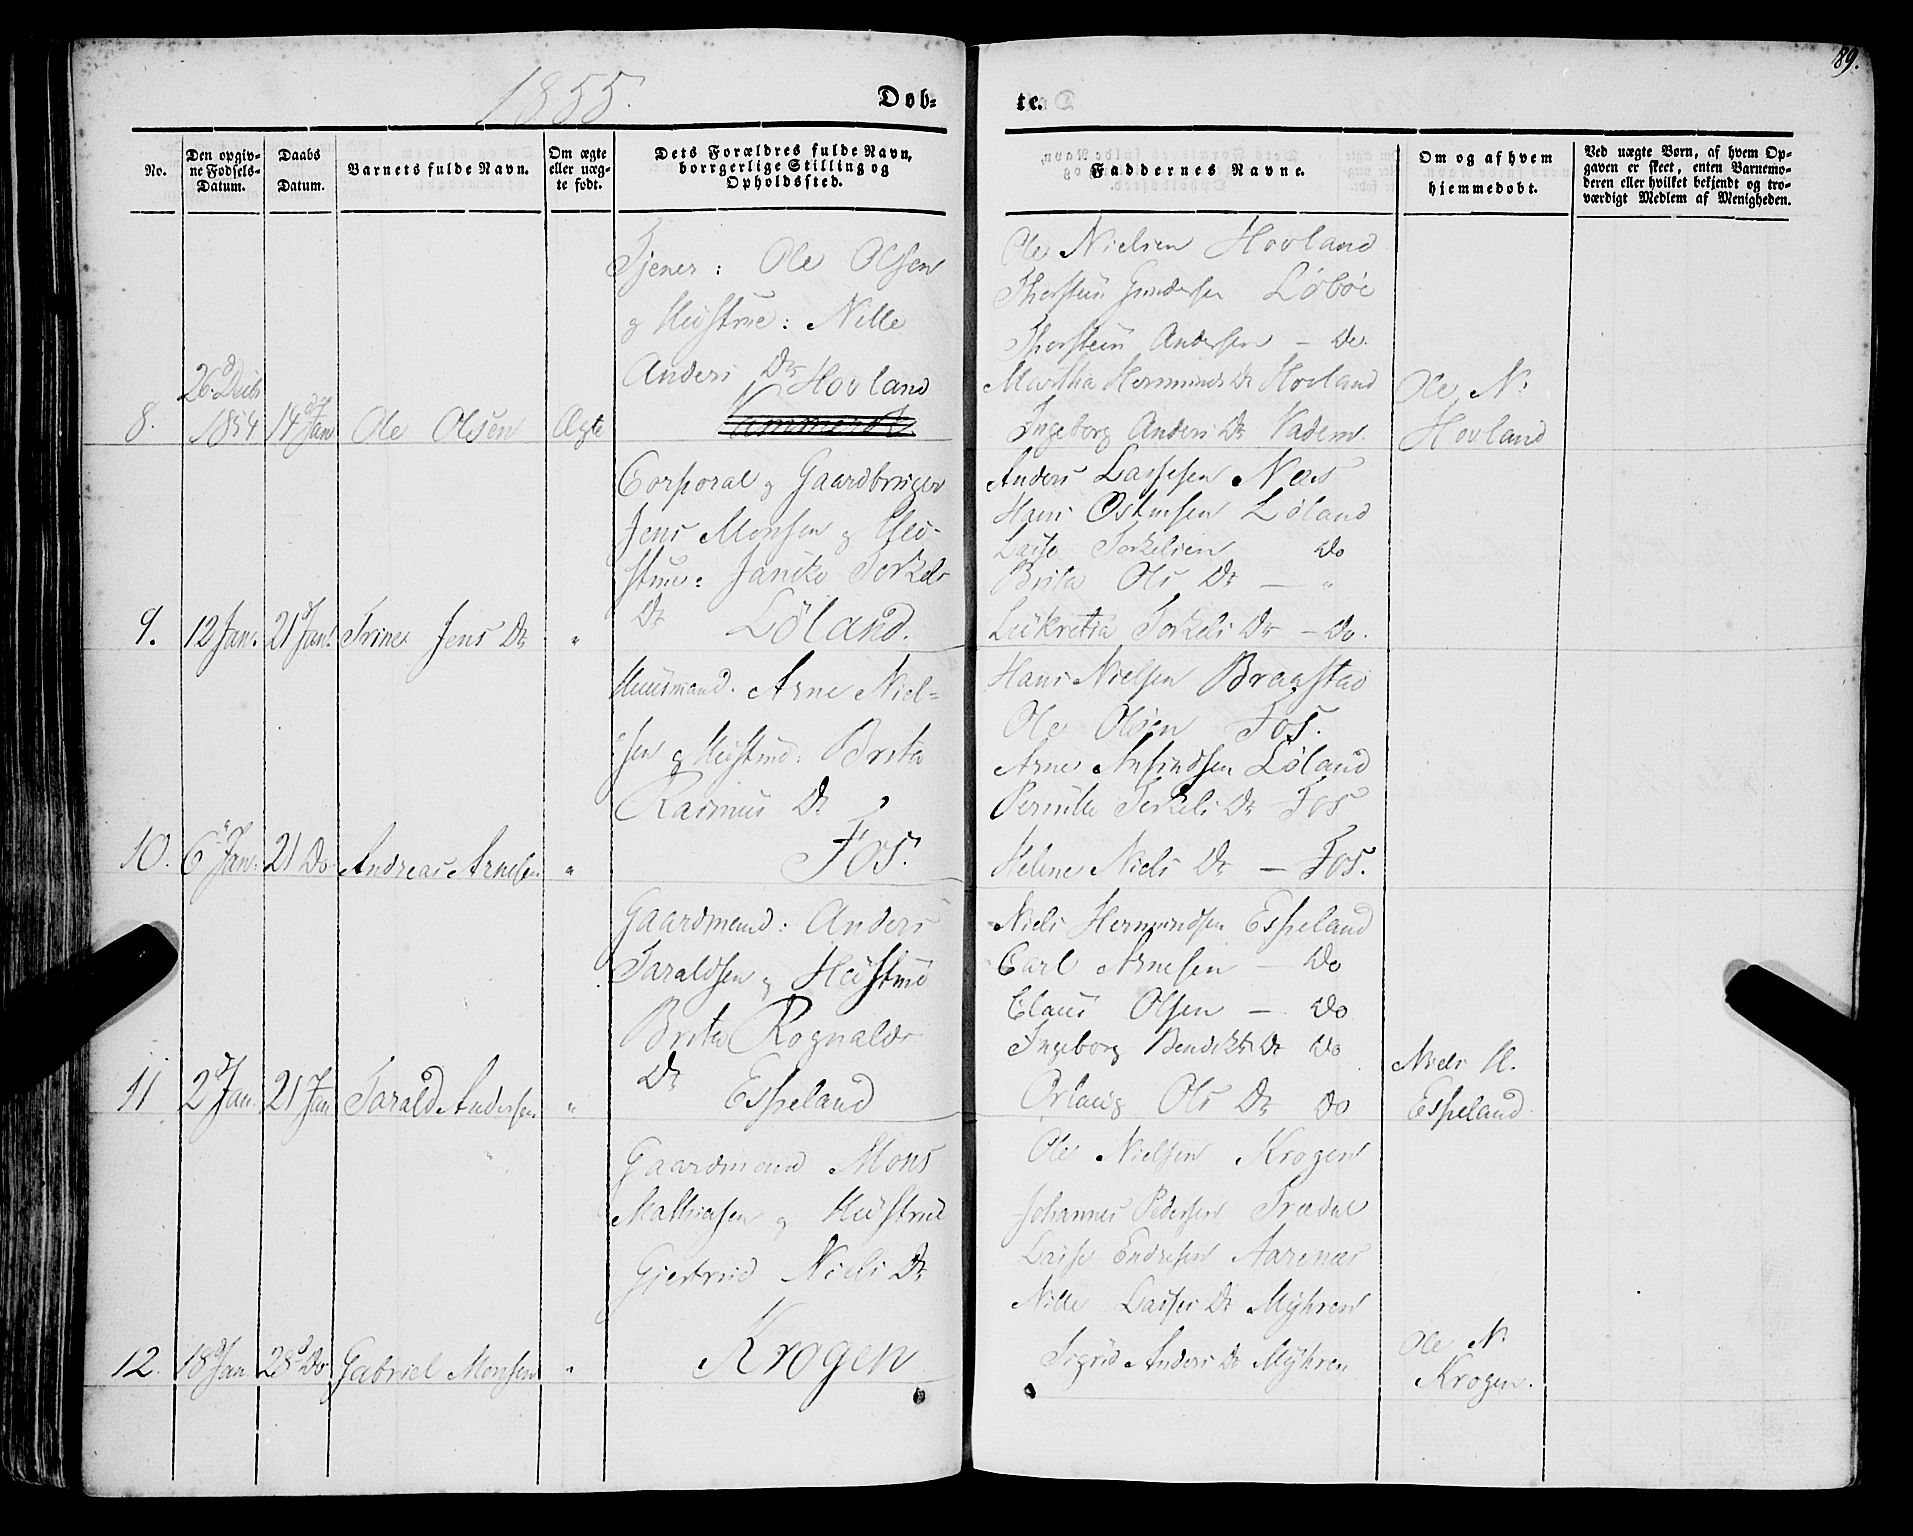 89.
1855.
Døb-
te.
No.
Den opgiv-
ne Fødsels-
Datum.
Daabs
Datum.
Barnets fulde Navn.
Om ægte
eller uæg-
te født.
Dets Forældres fulde Navn,
borrgerlige Stilling og
Opholdssted.
Faddernes Navne.
Om og af hvem
hjemmedøbt.
Ved uægte Børn, af hvem Op-
gaven er skeet, enten Barnemo-
deren eller hvilket bekjendt og tro-
værdigt Medlem af Menigheden.
8.
26 d Decb
1854
14 d Jan
Ole Olsen
Ægte
Tjener: Ole Olsen
og Hustrue: Nille
Anders Dr Hovland
Ole Nielsen Hovland
Thorsteen Gundersen Løbøe
Thorsteen Andersen – Do.
Martha Hermunds Dr Hovland
Ingeborg Anders Dr Vadem.
Ole N.
Hovland
9.
12 Jan.
21 d Jan.
Trine Jens Dr
"
Corporal og Gaardbruger
Jens Monsen og Hu-
strue: Janike Torkels
Dr Løland.
Anders Lassesen Næs
Hans Østensen Løland
Lasse Torkelsen Do
Brita Ols Dr — "
Lukretia Torkels Dr – Do.
10.
6 d Jan.
21 Do
Andreas Arnesen
"
Huusmand. Arne Niel-
sen og Hustrue: Brita
Rasmus Dr
Fos.
Hans Nielsen Braastad
Ole Olsen Fos.
Arne Anfindsen Løland
Pernille Torkels Dr Fos
Helene Niels Dr — Fos.
11
2 d Jan
21 Jan
Tarald Andersen
"
Gaardmand: Anders
Taraldsen og Hustrue
Brita Rognalds
Dr Espeland
Niels Hermundsen Espeland
Carl Arnesen — Do
Claus Olsen — Do
Ingeborg Bendikts Dr Do
Orlaug Ols Dr Do
Niels H.
Espeland
12.
18 d Jan
28 d Do
Gabriel Monsen
"
Gaardmand Mons
Mathiasen og Hustrue
Gjertrud Niels Dr
Krogen
Ole Nielsen Krogen
Johannes Pedersen Trædal
Lasse Endresen Aarenæs
Nille Lasses Dr Myhren
Sigrid Anders Dr Myhren
Ole N.
Krogen.